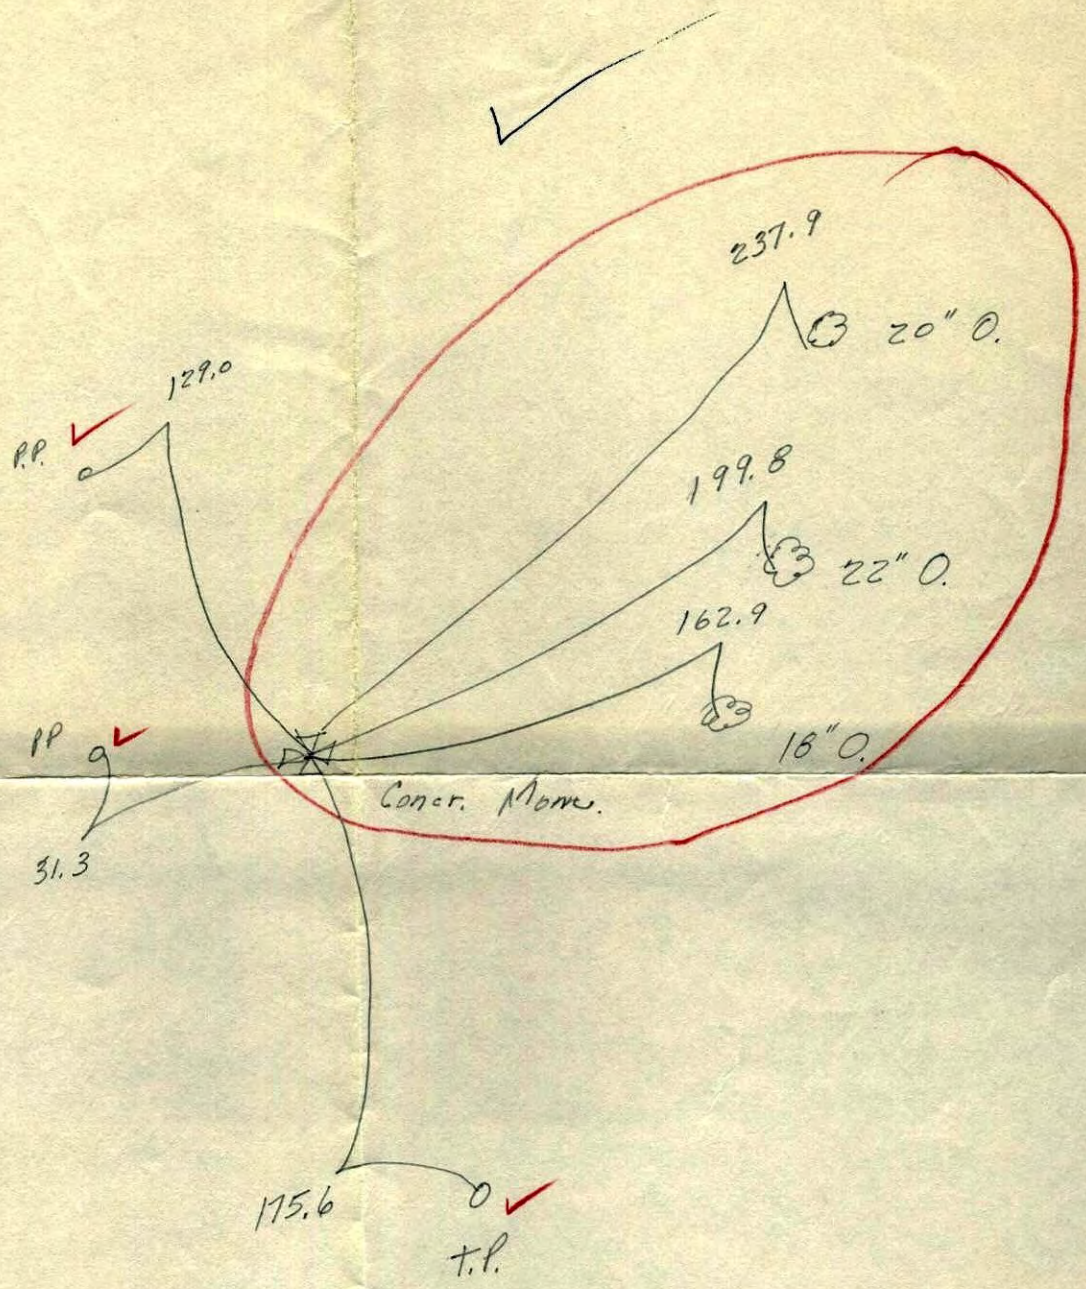 237.9
20" O.
129.0
P.P.
199.8
22" O.
162.9
18" O.
PP
Concr. Mon.
31.3
175.6
T.P.